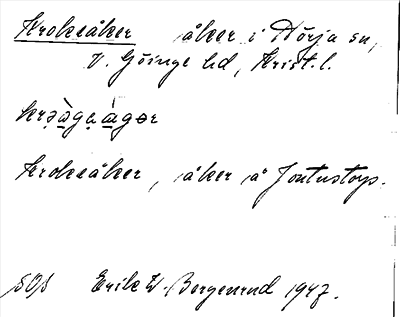 Kroksåker åker i Nörja sn,
V. Göinge hd, Krist. l.
Kroksåker, åker å Jontustorp.
SOS Erik W. Bergenrud 1947.